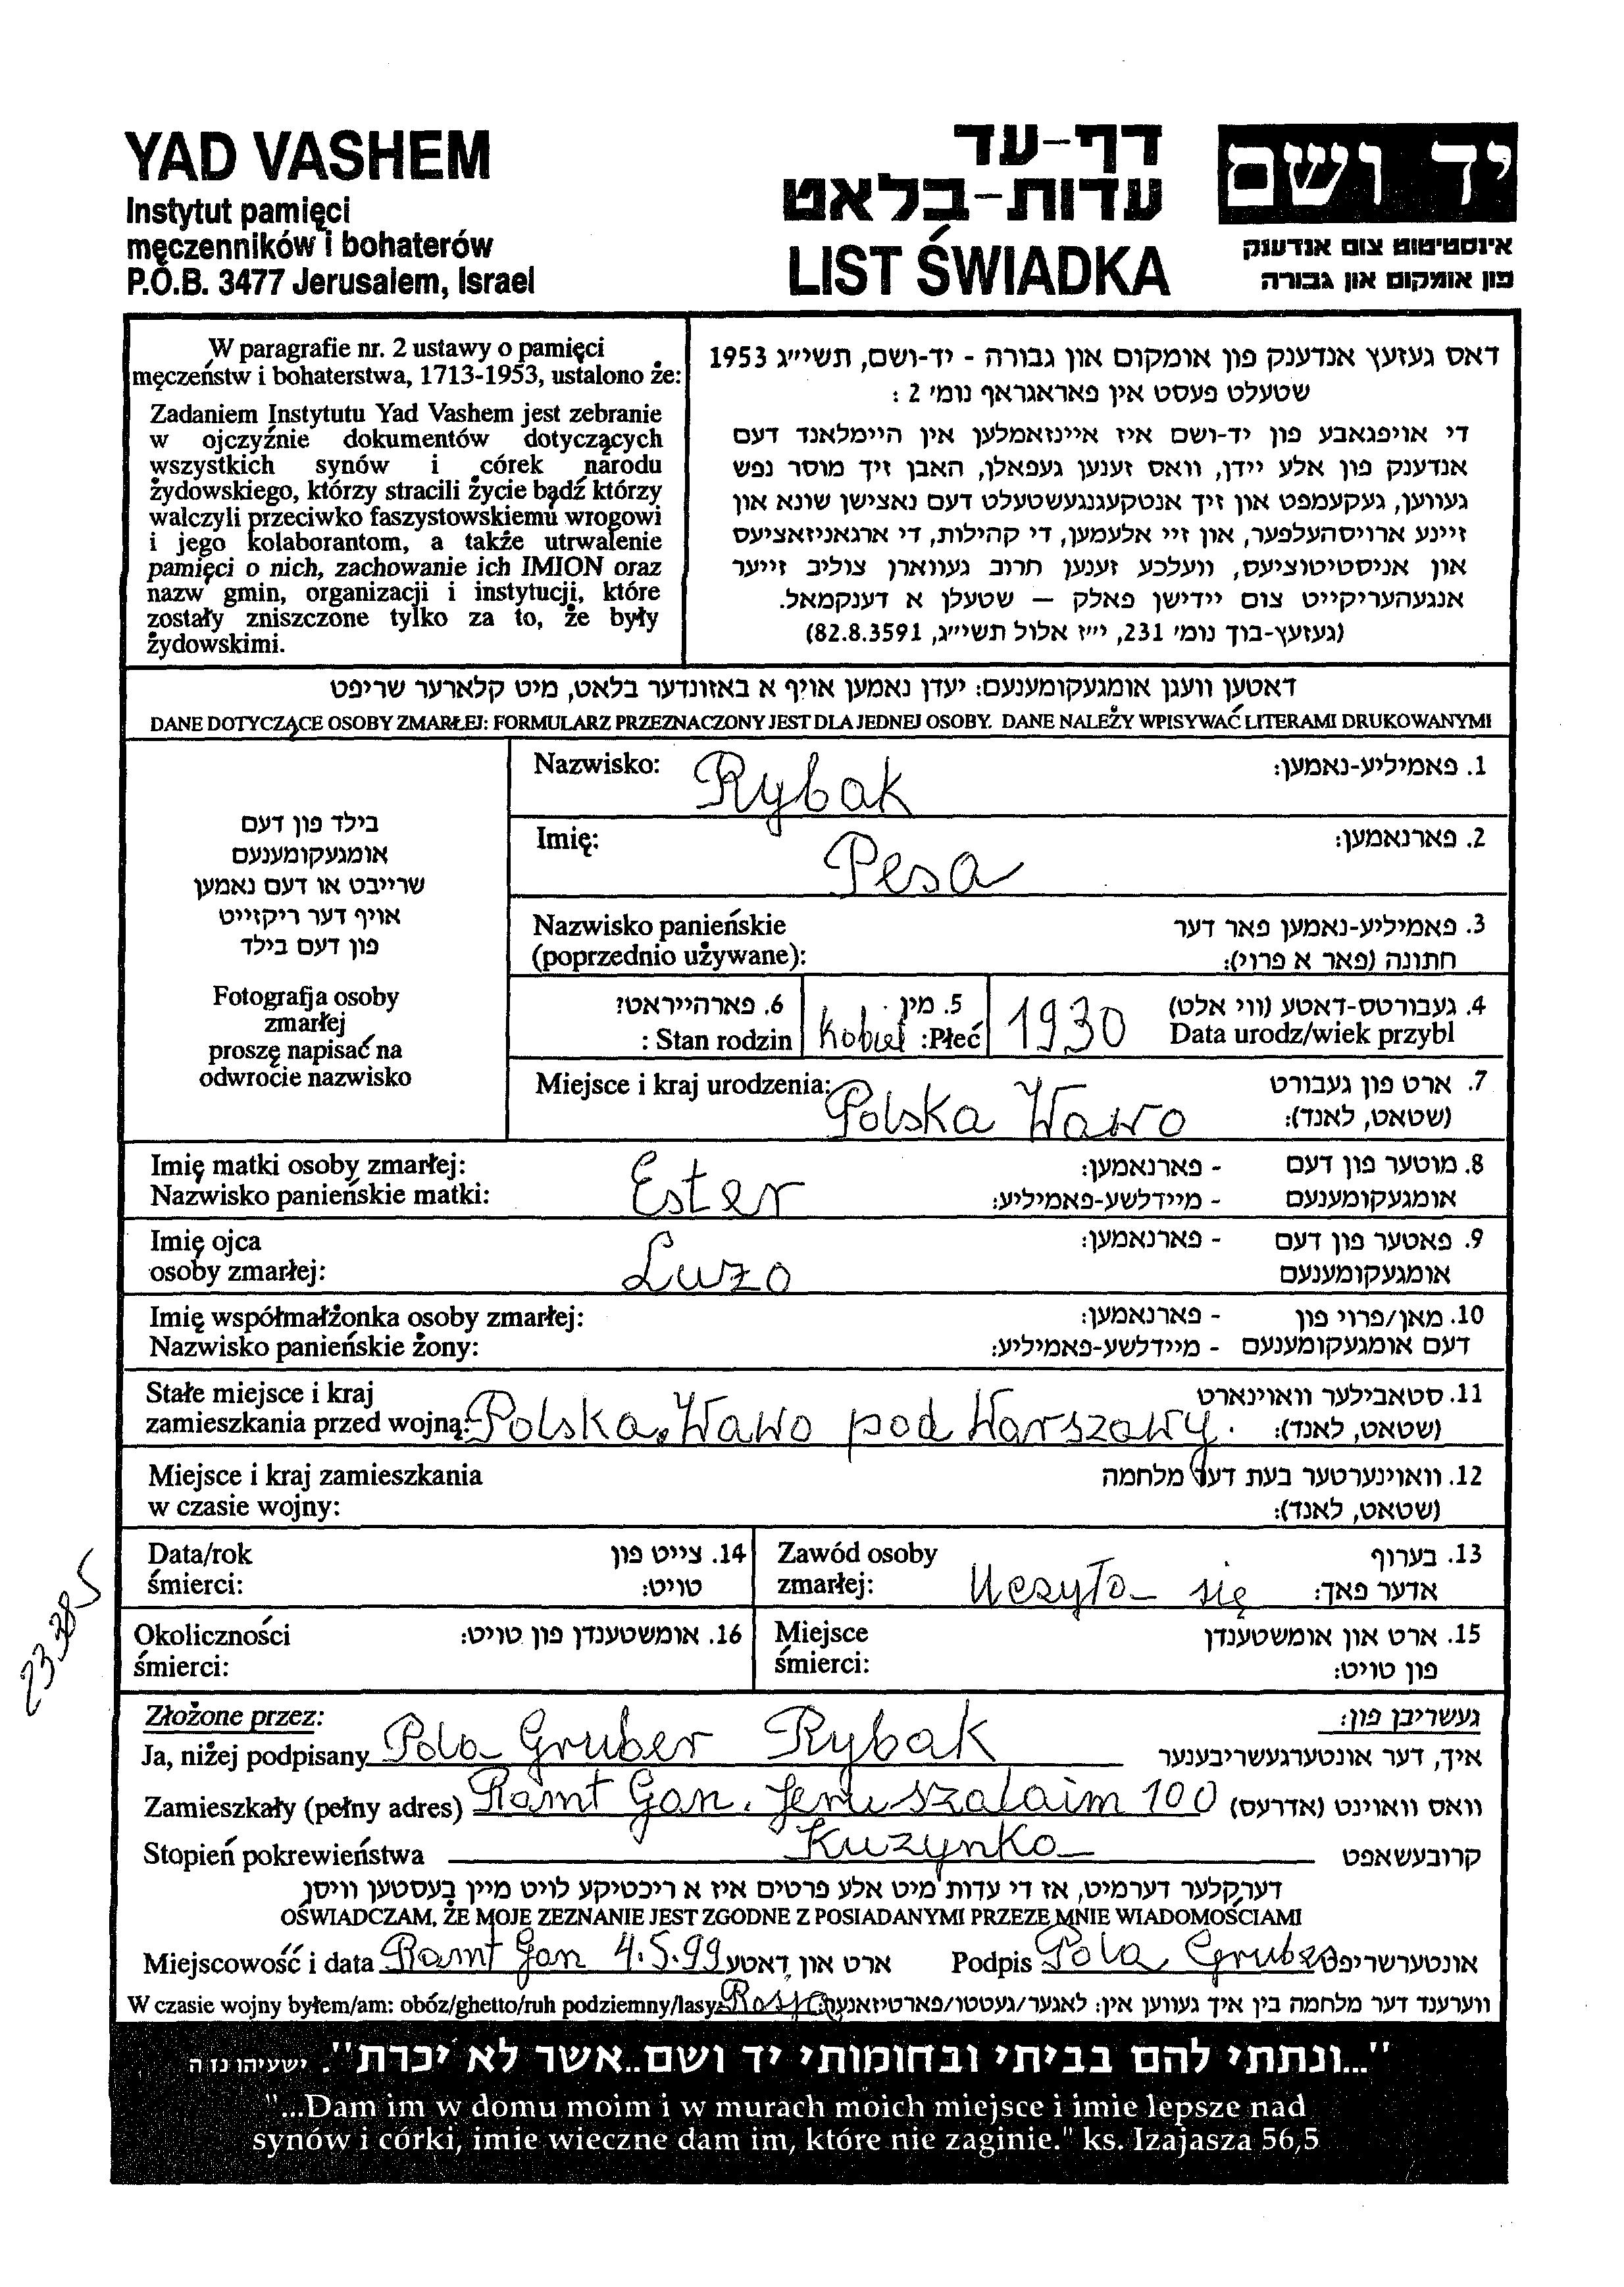 YAD VASHEM
Instytut pamięci
męczenników i bohaterów
P.O.B. 3477 Jerusalem, Israel
דף-עד
עדות-בלאט
LIST ŚWIADKA
יד ושם
אינסטיטוט צום אנדענק
פון אומקום און גבורה
W paragrafie nr. 2 ustawy o pamięci
męczeństw i bohaterstwa, 1713-1953, ustalono że:
Zadaniem Instytutu Yad Vashem jest zebranie
w ojczyźnie dokumentów dotyczących
wszystkich synów i córek narodu
żydowskiego, którzy stracili życie bądź którzy
walczyli przeciwko faszystowskiemu wrogowi
i jego kolaborantom, a także utrwalenie
pamięci o nich, zachowanie ich IMION oraz
nazw gmin, organizacji i instytucji, które
zostały zniszczone tylko za to, że były
żydowskimi.
דאס געזעץ אנדענק פון אומקום און גבורה - יד-ושם, תשי״ג 1953
שטעלט פעסט אין פאראגראף נומ׳ 2 :
די אויפגאבע פון יד-ושם איז איינזאמלען אין היימלאנד דעם
אנדענק פון אלע יידן, וואס זענען געפאלן, האבן זיך מוסר נפש
געווען, געקעמפט און זיך אנטקעגנגעשטעלט דעם נאצישן שונא און
זיינע ארויסהעלפער, און זיי אלעמען, די קהילות, די ארגאניזאציעס
און אניסטיטוציעס, וועלכע זענען חרוב געווארן צוליב זייער
אנגעהעריקייט צום יידישן פאלק – שטעלן א דענקמאל.
(געזעץ-בוך נומ׳ 231, י״ז אלול תשי״ג, 82.8.3591)
דאטען וועגן אומגעקומענעם: יעדן נאמען אויף א באזונדער בלאט, מיט קלארער שריפט
DANE DOTYCZĄCE OSOBY ZMARŁEJ: FORMULARZ PRZEZNACZONY JEST DLA JEDNEJ OSOBY. DANE NALEŻY WPISYWAĆ LITERAMI DRUKOWANYMI
בילד פון דעם
אומגעקומענעם
שרייבט או דעם נאמען
אויף דער ריקזייט
פון דעם בילד
Fotografja osoby
zmarłej
proszę napisać na
odwrocie nazwisko
Nazwisko: Rybak 1. פאמיליע-נאמען:
Imię: Pesa 2. פארנאמען:
Nazwisko panieńskie 3. פאמיליע-נאמען פאר דער
(poprzednio używane): חתונה (פאר א פרוי):
6. פארהייראט? 5. מין 4. געבורטס-דאטע (ווי אלט)
: Stan rodzin kobiet :Płeć 1930 Data urodz/wiek przybl
Miejsce i kraj urodzenia: Polska Wawo 7. ארט פון געבורט
(שטאט, לאנד):
Imię matki osoby zmarłej: Ester - פארנאמען: 8. מוטער פון דעם
Nazwisko panieńskie matki: - מיידלשע-פאמיליע: אומגעקומענעם
Imię ojca Luzo - פארנאמען: 9. פאטער פון דעם
osoby zmarłej: אומגעקומענעם
Imię współmałżonka osoby zmarłej: - פארנאמען: 10. מאן/פרוי פון
Nazwisko panieńskie żony: - מיידלשע-פאמיליע: דעם אומגעקומענעם
Stałe miejsce i kraj 11. סטאבילער וואוינארט
zamieszkania przed wojną: Polska, Wawo pod Warszawy. (שטאט, לאנד):
Miejsce i kraj zamieszkania 12. וואוינערטער בעת דער מלחמה
w czasie wojny: (שטאט, לאנד):
Data/rok 14. צייט פון
śmierci: טויט:
Zawód osoby 13. בערוף
zmarłej: Uczyła się אדער פאך:
Okoliczności 16. אומשטענדן פון טויט:
śmierci:
Miejsce 15. ארט און אומשטענדן
śmierci: פון טויט:
23385
Złożone przez: געשריבן פון:
Ja, niżej podpisany Pola Gruber Rybak איך, דער אונטערגעשריבענער
Zamieszkały (pełny adres) Ramt Gan. Jeruszalaim 100 וואס וואוינט (אדרעס)
Stopień pokrewieństwa Kuzynka קרובעשאפט
דערקלער דערמיט, אז די עדות מיט אלע פרטים איז א ריכטיקע לויט מיין בעסטען וויסן
OŚWIADCZAM, ŻE MOJE ZEZNANIE JEST ZGODNE Z POSIADANYMI PRZEZE MNIE WIADOMOŚCIAMI
Miejscowość i data Ramt Gan 4.5.99 ארט און דאטע Podpis Pola Gruber אונטערשריפט
W czasie wojny byłem/am: obóz/ghetto/ruh podziemny/lasy Rosja ווערענד דער מלחמה בין איך געווען אין: לאגער/געטטו/פארטיזאנער
"...ונתתי להם בביתי ובחומותי יד ושם..אשר לא יכרת". ישעיהו נז ה
"...Dam im w domu moim i w murach moich miejsce i imie lepsze nad
synów i córki, imie wieczne dam im, które nie zaginie." ks. Izajasza 56,5